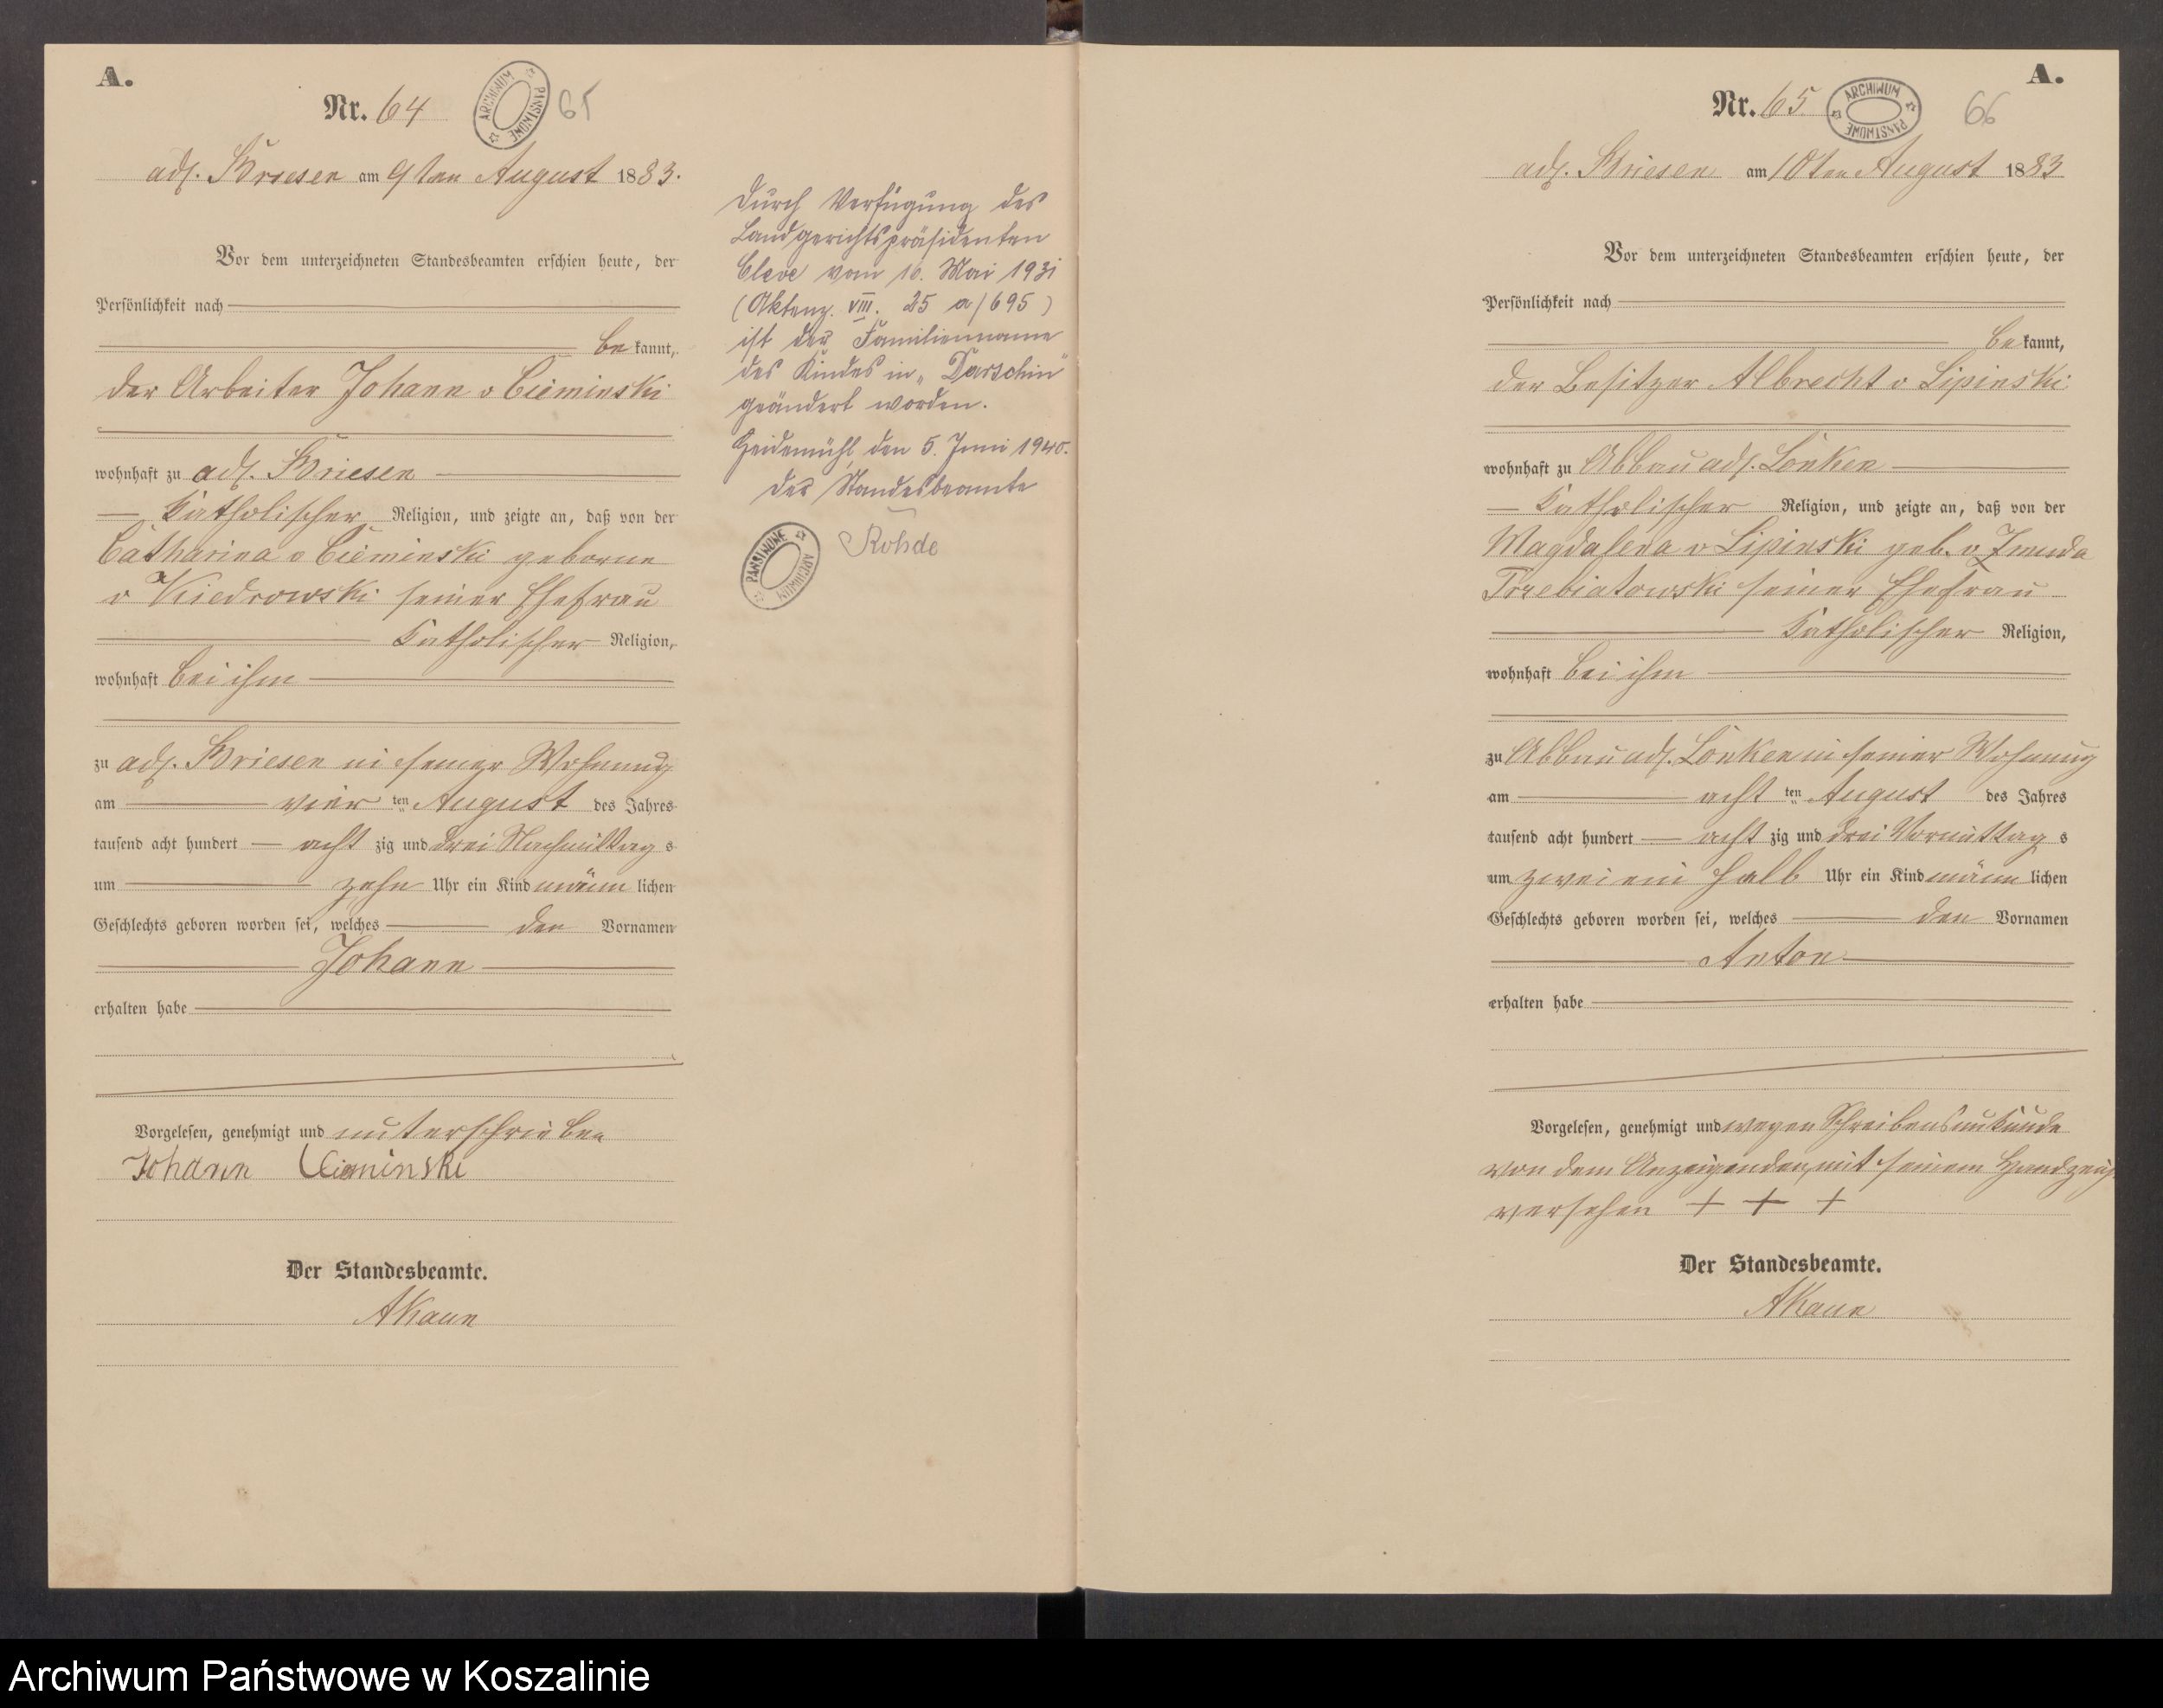 A.
Nr. 64
ARCHIWUM PAŃSTWOWE
65
adl. Briesen am 9ten August 1883.
Vor dem unterzeichneten Standesbeamten erschien heute, der
Persönlichkeit nach
be kannt,
der Arbeiter Johann v Cieminski
wohnhaft zu adl. Briesen
katholischer Religion, und zeigte an, daß von der
Catharina v Cieminski geborne
v Kiedrowski seiner Ehefrau
katholischer Religion,
wohnhaft bei ihm
zu adl. Briesen in seiner Wohnung
am vier ten August des Jahres
tausend acht hundert acht zig und drei Nachmittag s
um zehn Uhr ein Kind männ lichen
Geschlechts geboren worden sei, welches den Vornamen
Johann
erhalten habe
Vorgelesen, genehmigt und unterschrieben
Johann Cieminski
Der Standesbeamte.
AKaun
Durch Verfügung des
Landgerichtspräsidenten
Cleve vom 10. Mai 1931
(Aktenz. VIII. 25 a/695)
ist der Familienname
des Kindes in „Darschin"
geändert worden.
Heidemühl, den 5. Juni 1940.
Der Standesbeamte
Rohde
ARCHIWUM PAŃSTWOWE
A.
Nr. 65
ARCHIWUM PAŃSTWOWE
66
adl. Briesen am 10ten August 1883
Vor dem unterzeichneten Standesbeamten erschien heute, der
Persönlichkeit nach
be kannt,
der Besitzer Albrecht v Lipinski
wohnhaft zu Abbau adl. Lonken
katholischer Religion, und zeigte an, daß von der
Magdalena v Lipinski geb. v Zmuda
Trzebiatowski seiner Ehefrau
katholischer Religion,
wohnhaft bei ihm
zu Abbau adl. Lonken in seiner Wohnung
am acht ten August des Jahres
tausend acht hundert acht zig und drei Vormittag s
um zwei ein halb Uhr ein Kind männ lichen
Geschlechts geboren worden sei, welches den Vornamen
Anton
erhalten habe
Vorgelesen, genehmigt und wegen Schreibensunkunde
von dem Anzeigenden mit seinem Handzeich.
versehen + + +
Der Standesbeamte.
AKaun
Archiwum Państwowe w Koszalinie